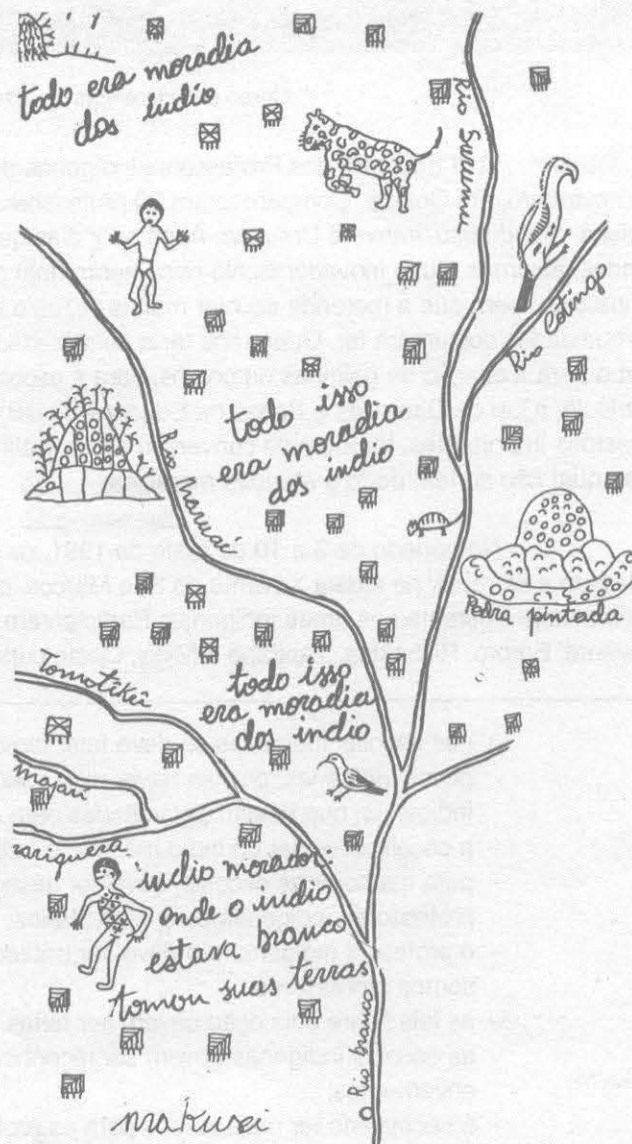 todo era moradia
dos indio
rio Surumu
rio Cotingo
todo isso
era moradia
dos indio
Pedra pintada
todo isso
era moradia
dos indio
Majari
indio morador:
onde o indio
estava branco
tomou suas terras
O Rio Branco
makuxi